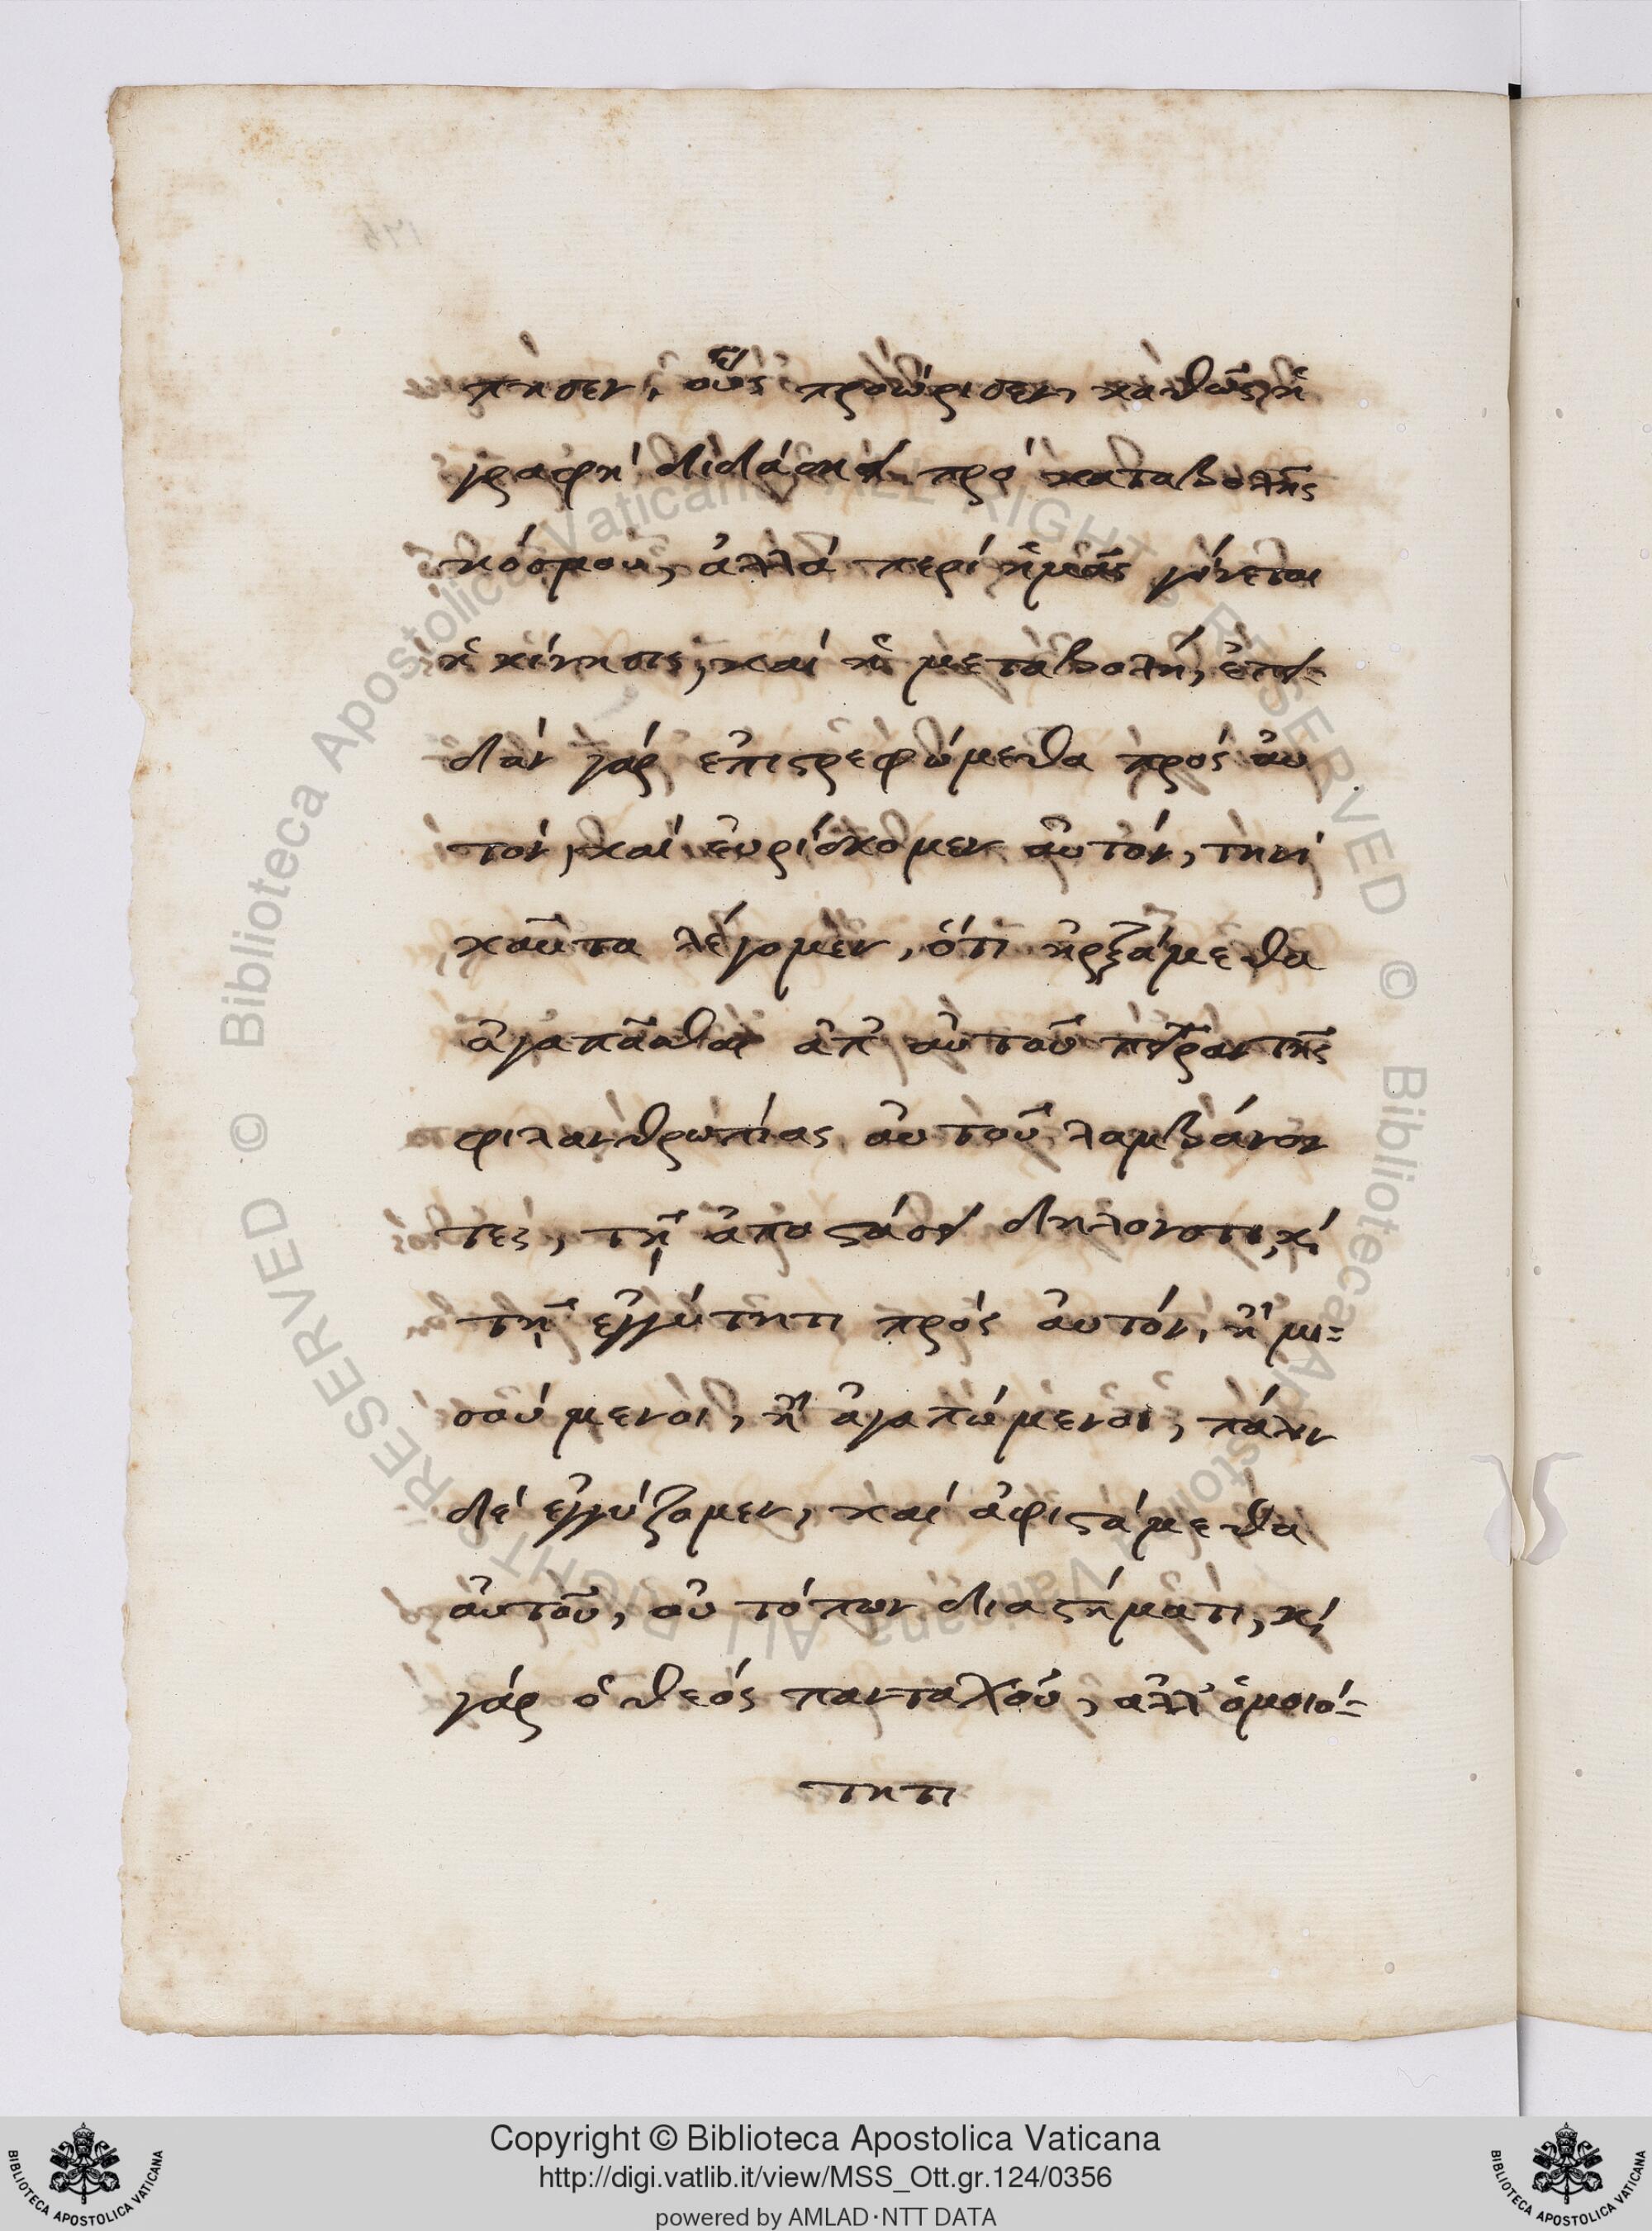 πησεν, οὓς προώρισεν, καθὼς ἡ
γραφὴ διδάσκει πρὸ καταβολῆς
κόσμου, ἀλλὰ περὶ ἡμᾶς γίνεται
ἡ κίνησις, καὶ ἡ μεταβολή, ἐπει-
δὰν γὰρ ἐπιστρεφώμεθα πρὸς αὐ
τόν, καὶ εὑρίσκομεν αὐτόν, τηνι
καῦτα λέγομεν, ὅτι ἠρξάμεθα
ἀγαπᾶσθαι ἀπ' αὐτοῦ πεῖραν τῆς
φιλανθρωπίας αὐτοῦ λαμβάνον
τες, τῇ ἀποστάσει δηλονότι, κ̀
τῇ ἐγγύτητι πρὸς αὐτόν, ἢ μι-
σούμενοι, ἢ ἀγαπώμενοι, πάλιν
δὲ ἐγγύζομεν, καὶ ἀφιστάμεθα
αὐτοῦ, οὐ τόπων διαστήματι, κ̀
γὰρ ὁ θεὸς πανταχοῦ, ἀλλ' ὁμοιό-
τητι
Copyright © Biblioteca Apostolica Vaticana
http://digi.vatlib.it/view/MSS_Ott.gr.124/0356
powered by AMLAD·NTT DATA
BIBLIOTECA APOSTOLICA VATICANA
BIBLIOTECA APOSTOLICA VATICANA
© Biblioteca Apostolica Vaticana ALL RIGHTS RESERVED
© Biblioteca Apostolica Vaticana ALL RIGHTS RESERVED